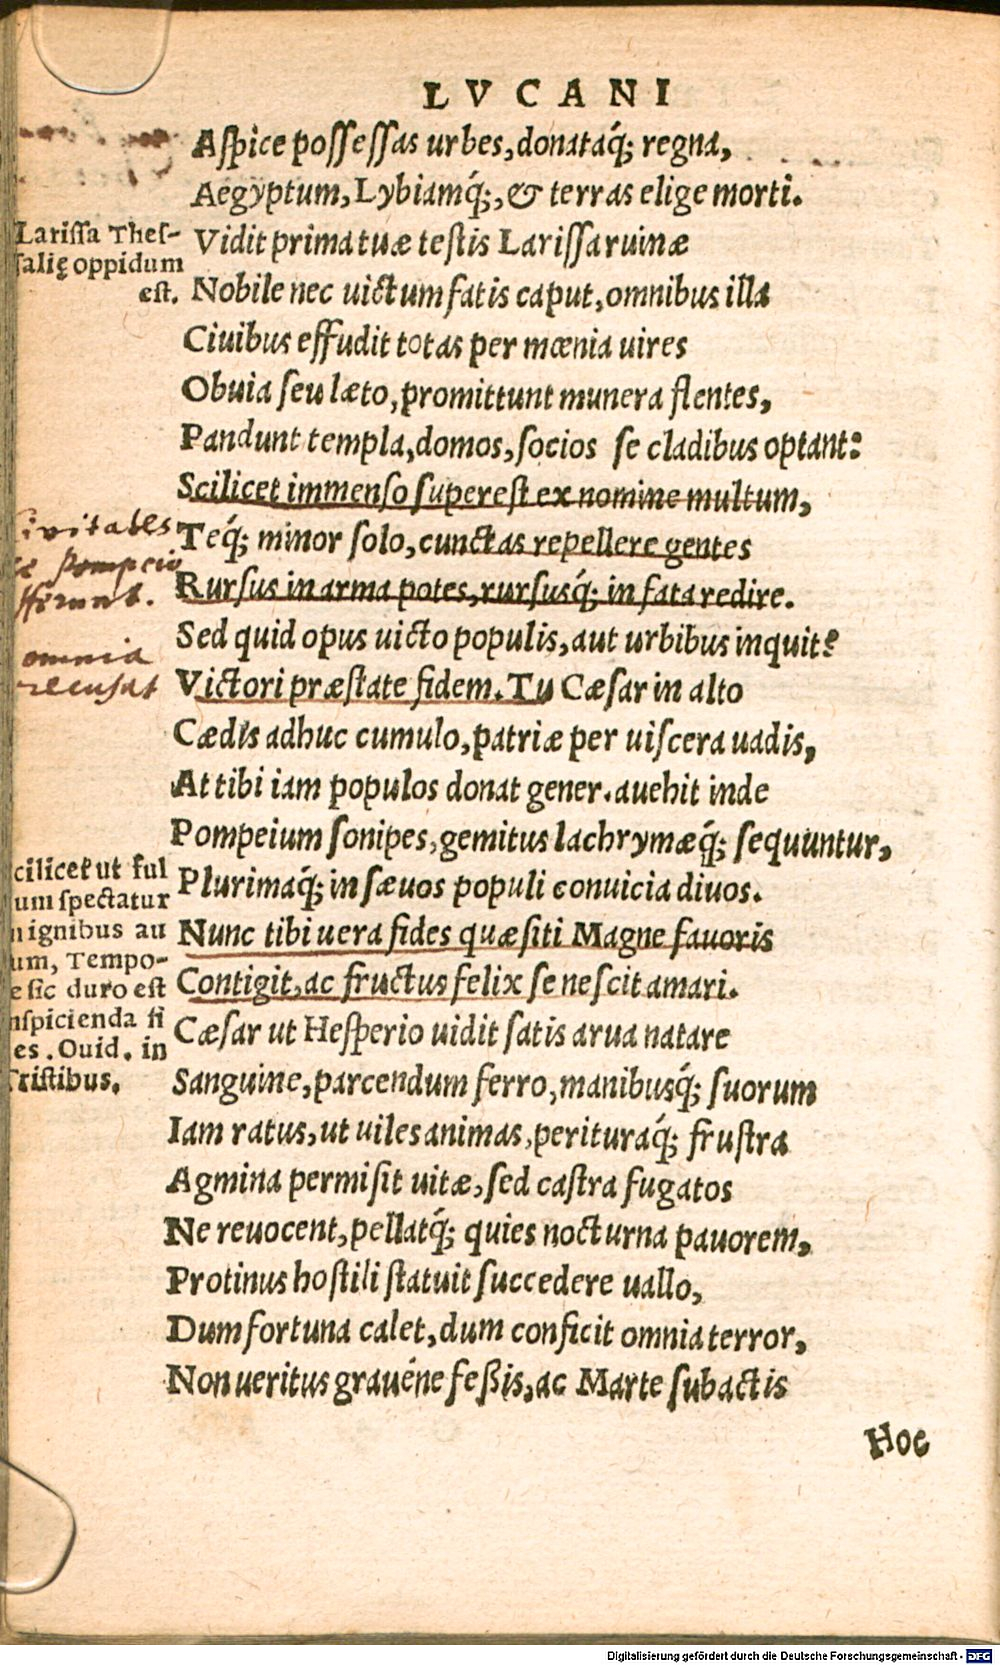 LVCANI
Aſpice poſſeſſas urbes, donataq́; regna,
Aegyptum, Lybiamq́;, & terras elige morti.
Lariſſa Theſ-
ſalię oppidum
est.
Vidit prima tuæ teſtis Lariſſa ruinæ
Nobile nec uictum fatis caput, omnibus illa
Ciuibus effudit totas per mœnia uires
Obuia ſeu læto, promittunt munera flentes,
Pandunt templa, domos, ſocios ſe cladibus optant:
Scilicet immenſo ſupereſt ex nomine multum,
Teq́; minor ſolo, cunctas repellere gentes
Rurſus in arma potes, rurſusq́; in fata redire.
civitates
se Pompeio
offerunt.
Sed quid opus uicto populis, aut urbibus inquit?
Victori præſtate fidem. Tu Cæſar in alto
omnia
recusat
Cædis adhuc cumulo, patriæ per uiſcera uadis,
At tibi iam populos donat gener. auehit inde
Pompeium ſonipes, gemitus lachrymæq́; ſequuntur,
Plurimaq́; in ſæuos populi conuicia diuos.
Nunc tibi uera fides quæſiti Magne fauoris
Contigit, ac fructus felix ſe neſcit amari.
cilicet ut ful
um ſpectatur
n ignibus au
um, Tempo-
e ſic duro eſt
nſpicienda fi
es. Ouid. in
Triſtibus.
Cæſar ut Heſperio uidit ſatis arua natare
Sanguine, parcendum ferro, manibusq́; ſuorum
Iam ratus, ut uiles animas, perituraq́; fruſtra
Agmina permiſit uitæ, ſed caſtra fugatos
Ne reuocent, pellatq́; quies nocturna pauorem,
Protinus hoſtili ſtatuit ſuccedere uallo,
Dum fortuna calet, dum conficit omnia terror,
Non ueritus grauéne feßis, ac Marte ſubactis
Hoc
Digitalisierung gefördert durch die Deutsche Forschungsgemeinschaft - DFG